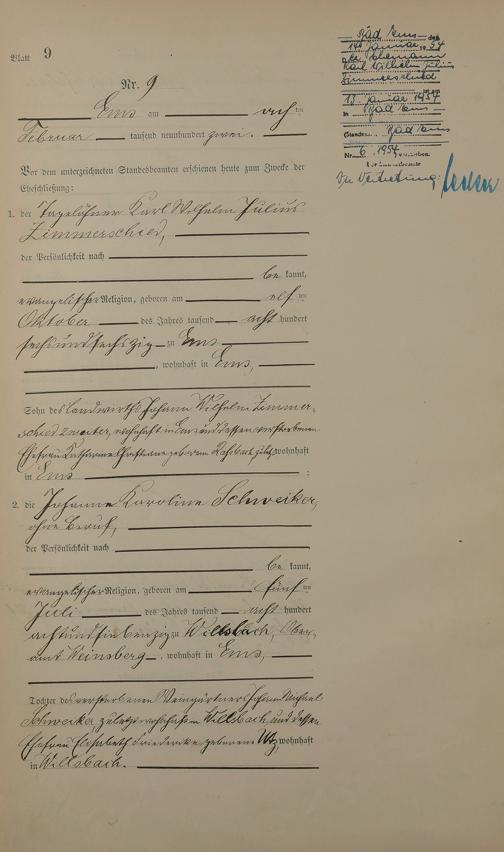 Blatt 9
Nr. 9
Ems am acht
Februar tausend neunhundert zwei.
Vor dem unterzeichneten Standesbeamten erschienen heute zum Zwecke der
Eheschließung:
1. der Tagelöhner Karl Wilhelm Julius
Zimmerschied,
der Persönlichkeit nach
be kannt,
evangelischer Religion, geboren am elf ten
Oktober des Jahres tausend acht hundert
sechsundsechszig zu Ems
, wohnhaft in Ems,
Sohn des Landwirths Johann Wilhelm Zimmer-
schied zweiter, wohnhaft in Ems und dessen verstorbenen
Ehefrau Katharine geborene zuletzt wohnhaft
in Ems :
2. die Johanne Karoline Schweiker,
ohne Beruf,
der Persönlichkeit nach
be kannt,
evangelischer Religion, geboren am fünf ten
Juli des Jahres tausend acht hundert
achtundsiebenzig zu Willsbach, Ober-
amt Weinsberg, wohnhaft in Ems,
Tochter des verstorbenen Weingärtners Johann Michael
Schweiker, zuletzt wohnhaft in Willsbach und dessen
Ehefrau Elisabeth Friederike geborene Utz, wohnhaft
in Willsbach.
Bad Ems
14. Januar 1954
der Ehemann
Karl Wilhelm Julius
Zimmerschied
18. Januar 1954
Bad Ems
Standes Bad Ems
Nr. 6 1954
In Vertretung: